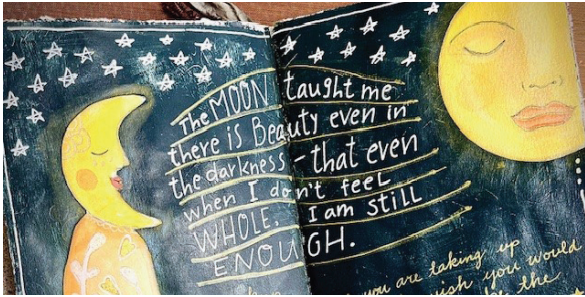 The MOON taught me
there is Beauty even in
the darkness - that even
when I don't feel
WHOLE. I am still
ENOUGH.
you are taking up
wish you would
the